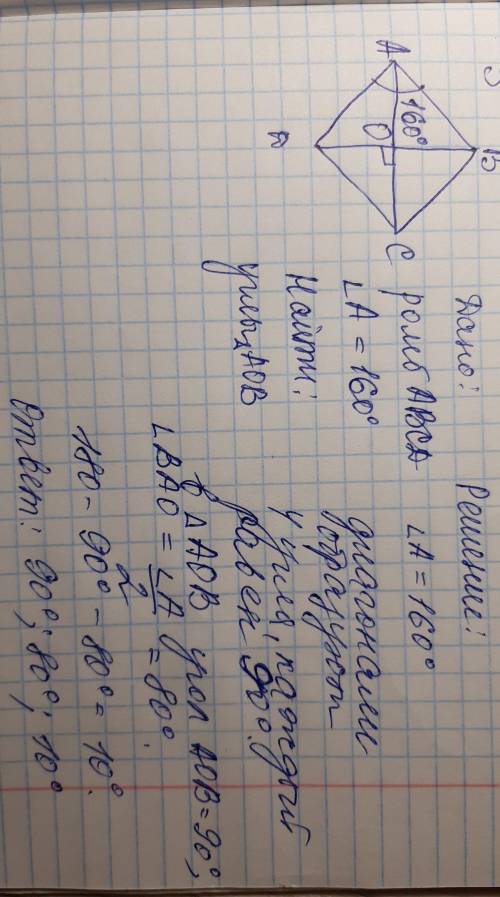 A
160°
O
B
C
Дано:
ромб ABCD
∠A = 160°
Найти:
углы △AOB
Решение:
∠A = 160°
диагонали
образуют
4 угла, каждый
равен 90°.
в △AOB угол AOB = 90°,
∠BAO = ∠A/2 = 80°.
180 - 90° - 80° = 10°.
Ответ: 90°; 80°; 10°